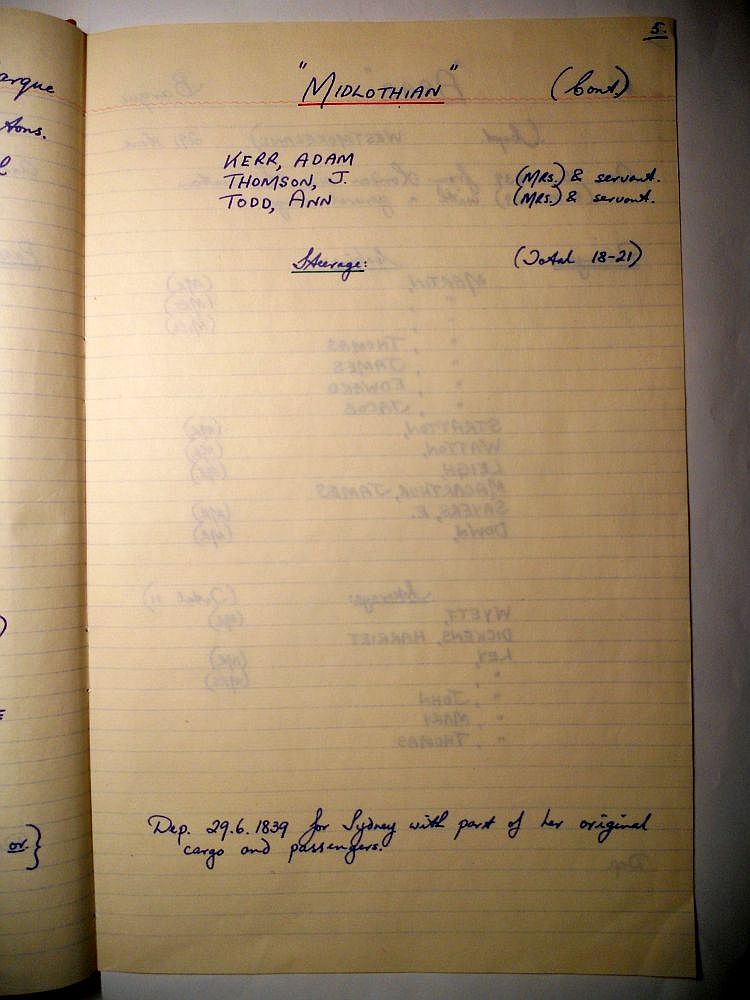 5.
"MIDLOTHIAN" (Cont.)
KERR, ADAM
THOMSON, J. (MRS.) & servant.
TODD, ANN (MRS.) & servant.
Steerage: (Total 18-21)
Dep. 29.6.1839 for Sydney with part of her original
cargo and passengers.
arque
tons.
or